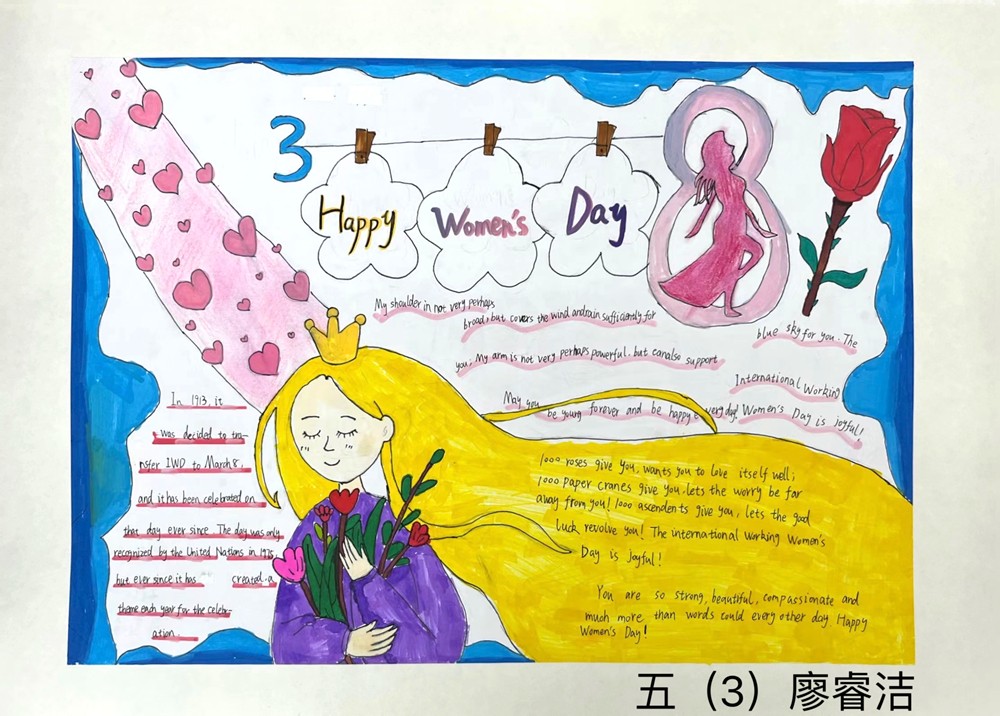 3
Happy
Women's
Day
8
My shoulder in not very perhaps
broad, but covers the wind andrain sufficiently for
you; My arm is not very perhaps powerful. but canalso support
blue sky for you. The
International Working
May you be young forever and be happy every day! Women's Day is joyful!
In 1913, it
was decided to tra-
nsfer IWD to March 8.
and it has been celebrated on
that day ever since. The day was only
recognized by the United Nations in 1975,
but ever since it has created a
theme each year for the celebr-
ation
1000 roses give you, wants you to love itself well;
1000 paper cranes give you, lets the worry be far
away from you! 1000 ascendents give you, lets the good
luck revolve you! The international Working Women's
Day is joyful!
You are so strong, beautiful, compassionate and
much more than words could every other day Happy
Women's Day!
五（3）廖睿洁